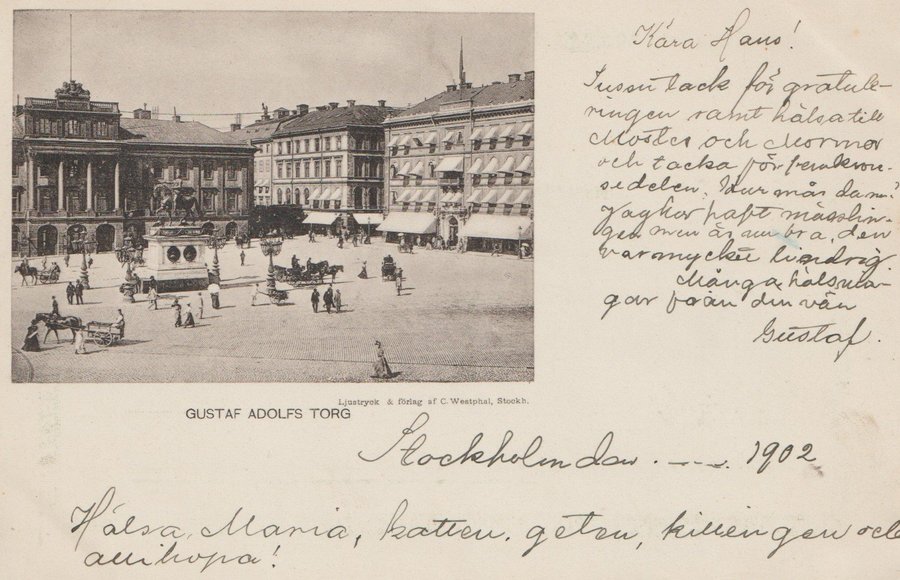 Kära Hans!
Tusen tack för gratule-
ringen samt hälsa till
Moster och Mormor
och tacka för femkron-
sedeln. Hur mår dam?
Jag har haft mässlin-
gen men är nu bra, den
var mycket lindrig.
Många hälsnin-
gar från din vän
Gustaf.
Ljustryck & förlag af C. Westphal, Stockh.
GUSTAF ADOLFS TORG
Stockholm den . – – . 1902
Hälsa, Maria, katten. geten, killingen och
allihopa!